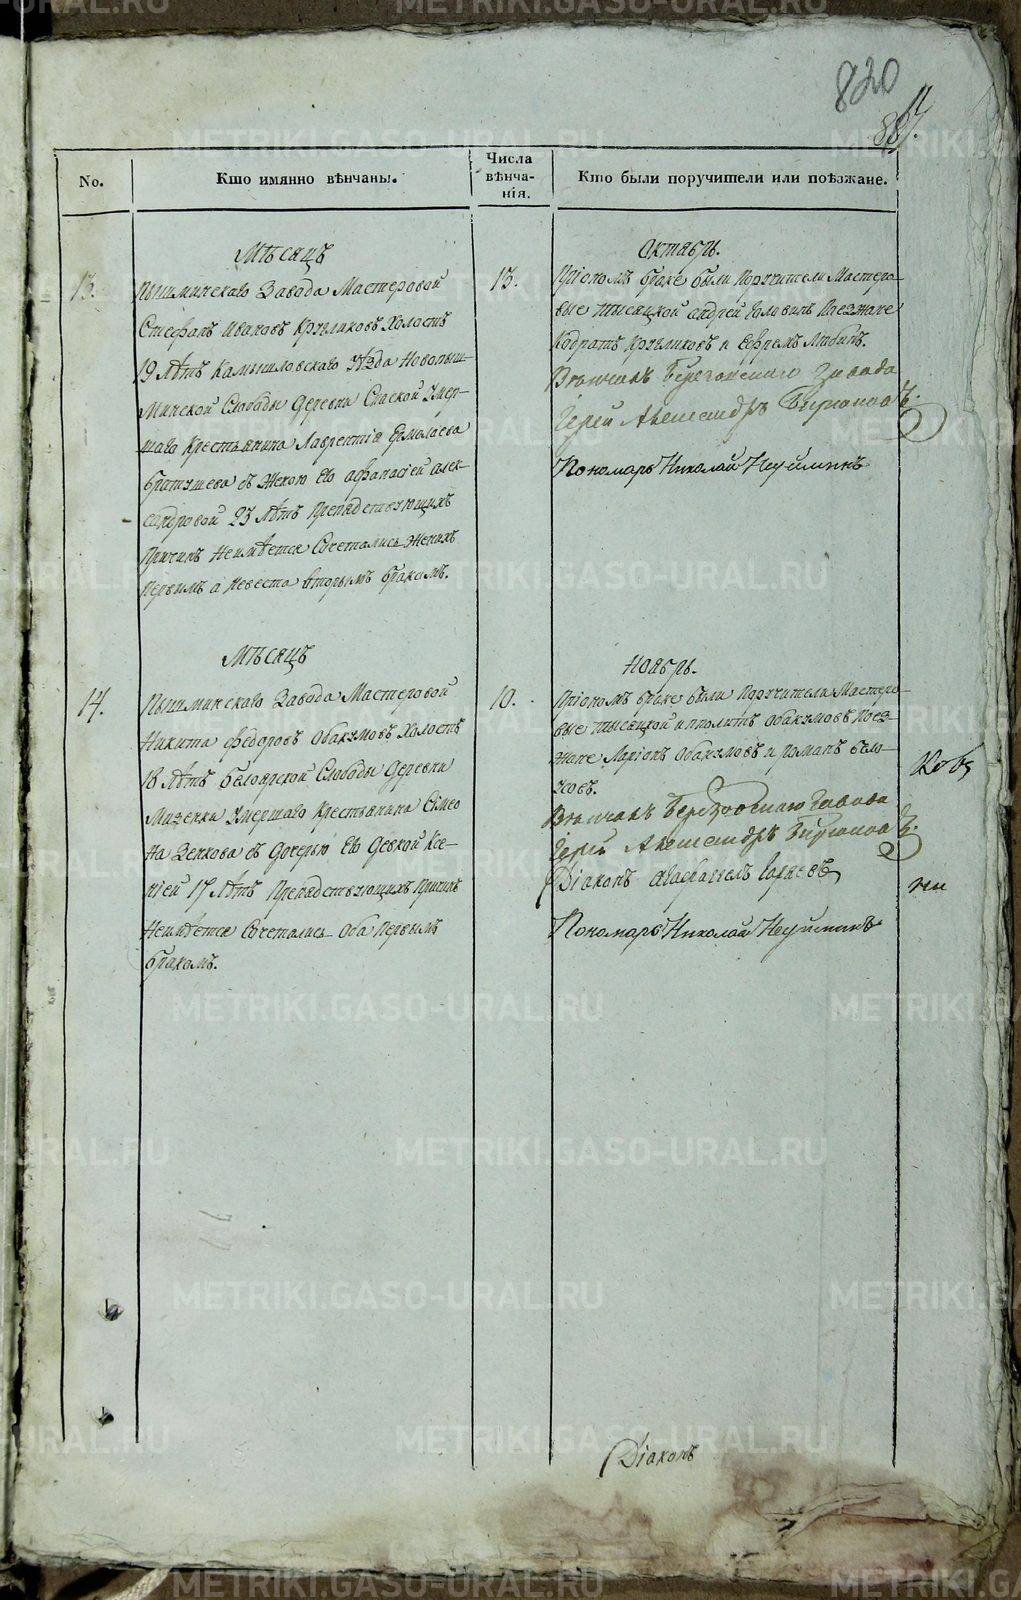 820
No.
Кто имянно вѣнчаны.
Числа
вѣнча-
нія.
Кто были поручители или поѣзжане.
Мѣсяцъ
Октябрь.
13.
Пышминскаго Завода Мастеровой
Стефанъ Ивановъ Кругликовъ Холостъ
19 лѣтъ Камышловскаго Уѣзда Новопыш-
минской Слободы Деревни Спаской Умер-
шаго Крестьянина Лаврентія Ермолаева
Братушева съ Женою Ево Афанасіей Алек-
сандровой 23 лѣтъ Препядствующихъ
Причинъ Неимѣется Сочетались Женихъ
Первымъ а Невеста вторымъ бракомъ.
13.
Пріономъ браке были Поручители Мастеро-
вые тысяцкой Андрей Головинъ Поезжане
Кодратъ Кругликовъ и Ефремъ Любинъ.
Венчалъ Березовскаго Завода
Іерей Александръ Бирюковъ.
Пономарь Николай Неуйминъ
Мѣсяцъ
Ноябрь.
14.
Пышминскаго Завода Мастеровой
Никита Федоровъ Обакумовъ Холостъ
18 лѣтъ Белоярской Слободы Деревни
Мизенки Умершаго Крестьянина Симео
на Зенкова съ Дочерью Ево Девкой Ксе-
ніей 17 лѣтъ Препядствующихъ Причинъ
Неимѣется Сочетались Оба Первымъ
бракомъ.
10.
Пріономъ браке были Поручители Мастеро-
вые тысяцкой Ипполитъ Обакумовъ Поез-
жане Ларіонъ Обакумовъ и Романъ Бело-
усовъ.
Венчалъ Березовскаго Завода
Іерей Александръ Бирюковъ.
Діаконъ
Пономарь Николай Неуйминъ
Діаконъ
METRIKI.GASO-URAL.RU